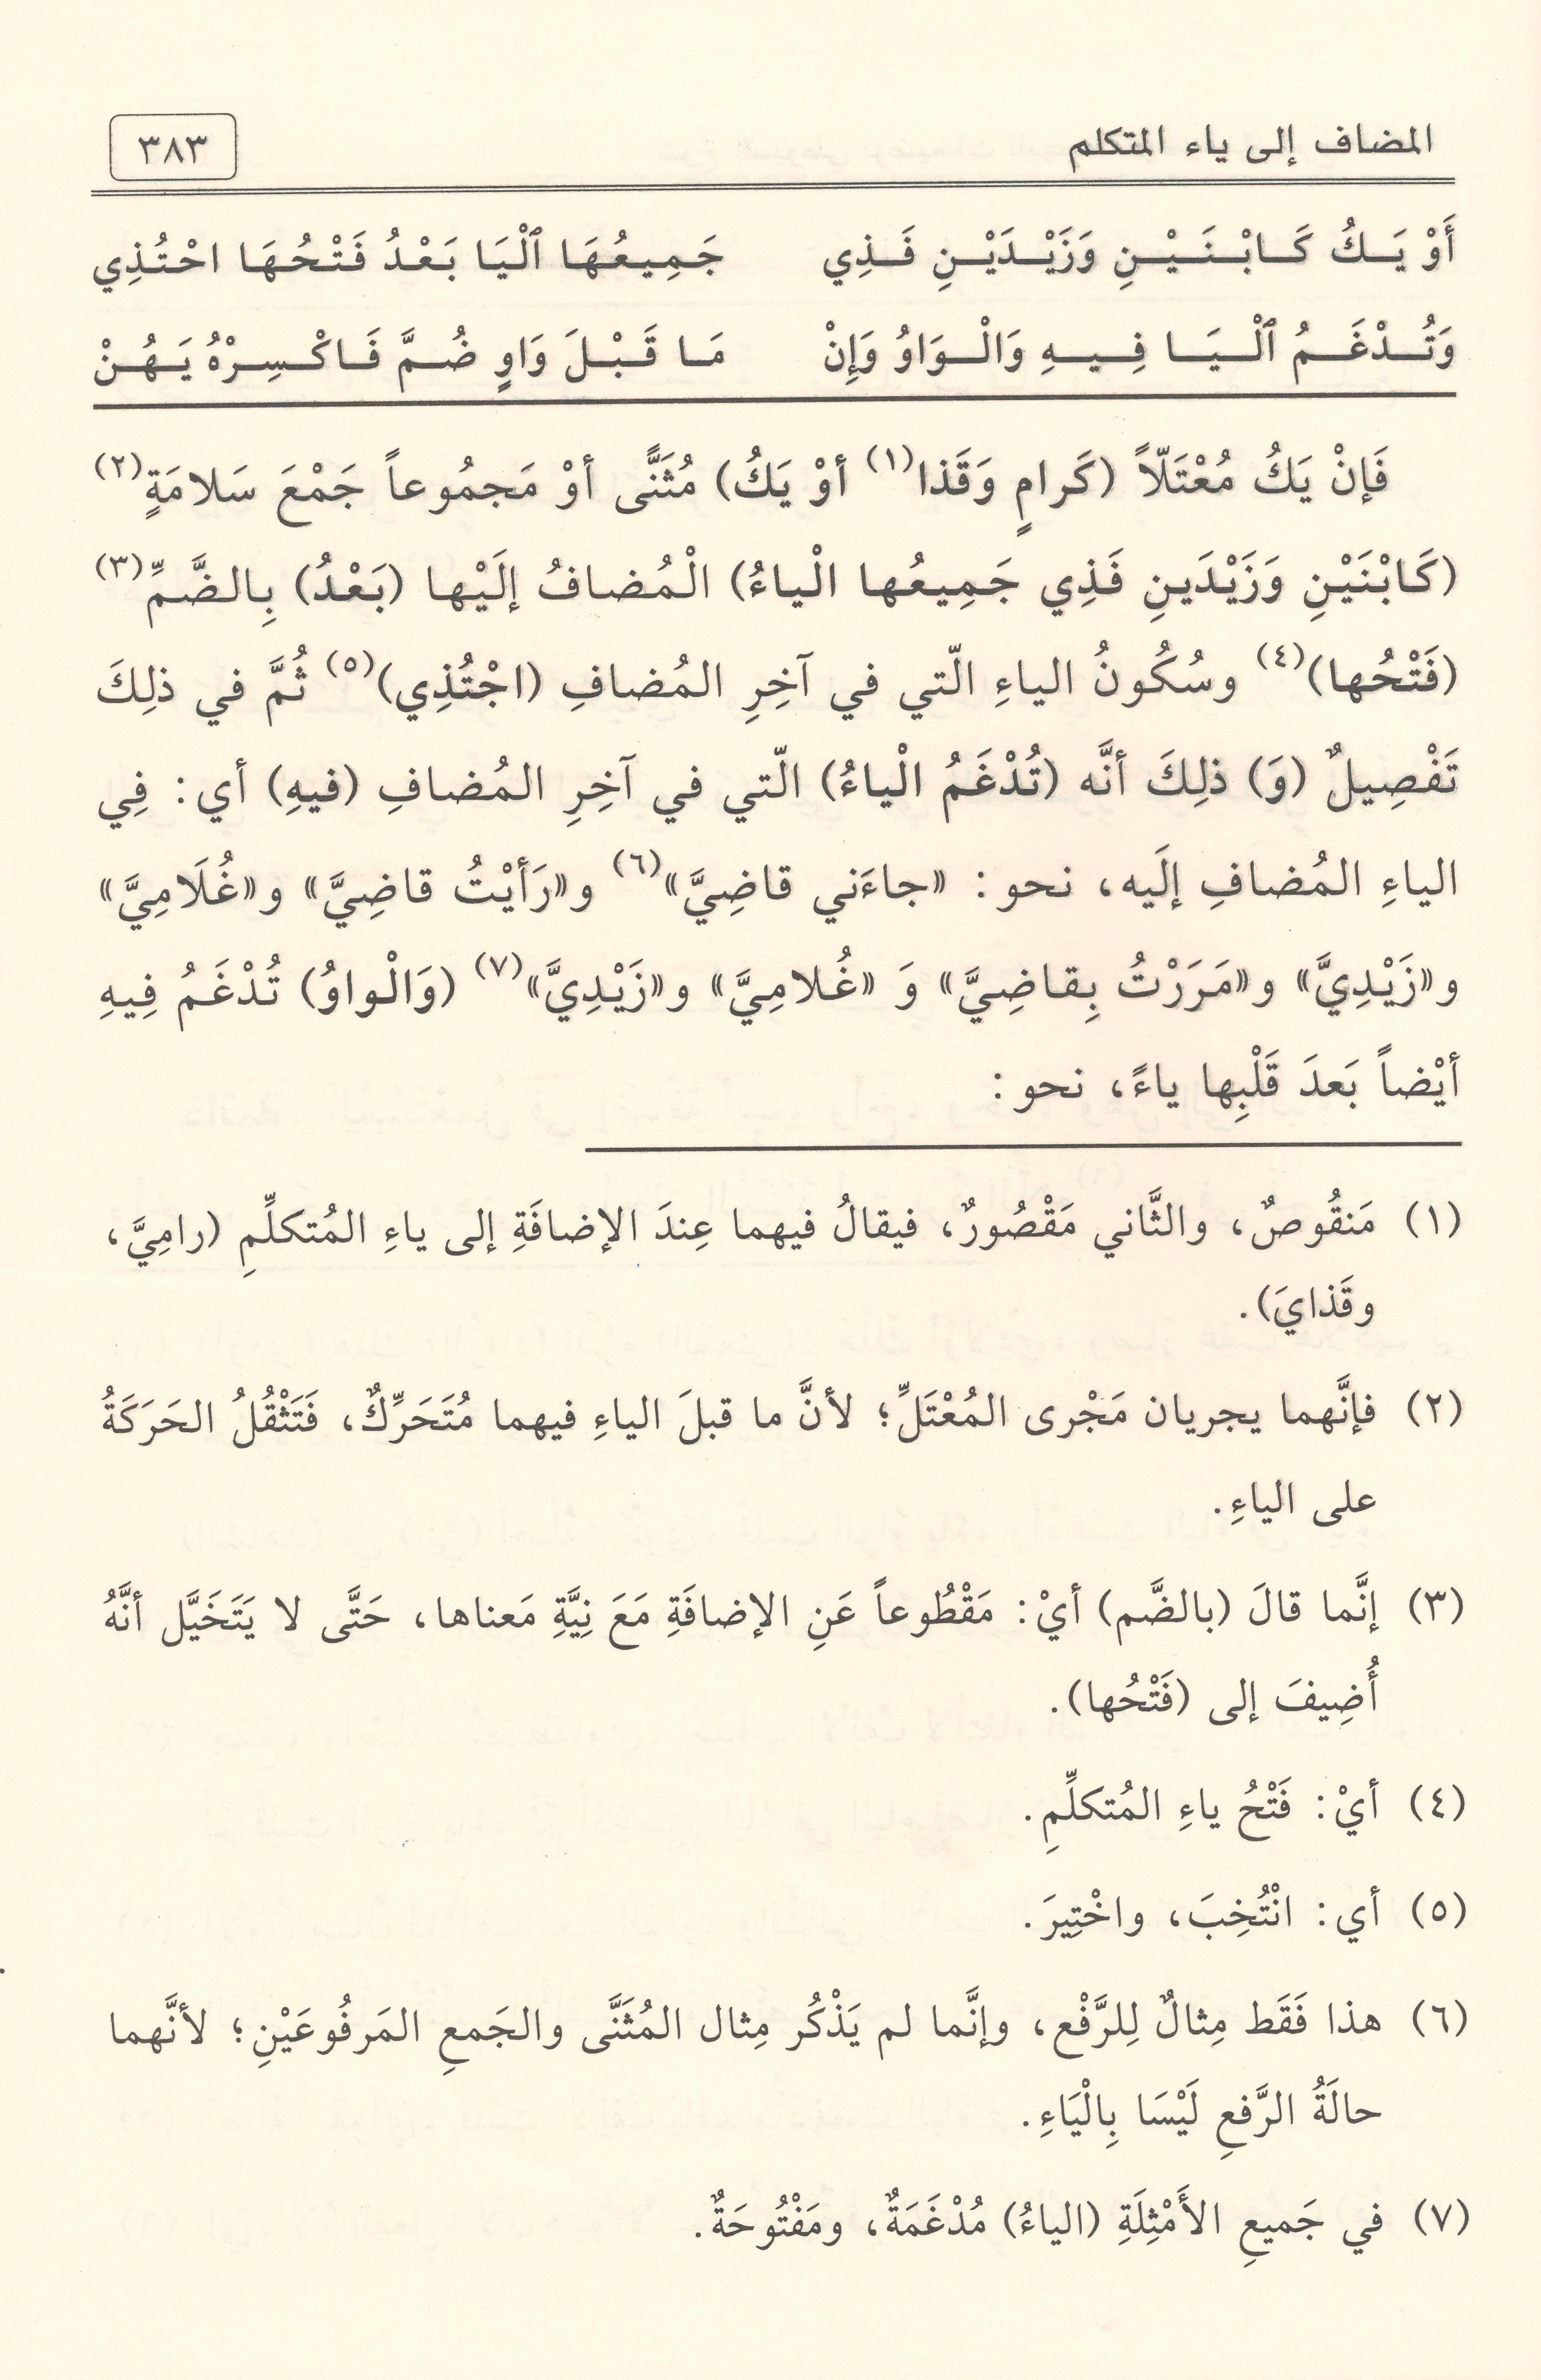 المضاف إلى ياء المتكلم ٣٨٣
أَوْ يَـكُ كَـابْـنَـيْـنِ وَزَيْـدَيْـنِ فَـذِي جَـمِيعُهَا ٱلْيَا بَـعْـدُ فَـتْـحُـهَا احْـتُـذِي
وَتُـدْغَـمُ ٱلْـيَـا فِـيـهِ وَالْـوَاوُ وَإِنْ مَـا قَـبْـلَ وَاوٍ ضُـمَّ فَـاكْـسِـرْهُ يَـهُـنْ
فَإنْ يَكُ مُعْتَلّاً (كَرامٍ وَقَذا(١) أوْ يَكُ) مُثَنًّى أوْ مَجمُوعاً جَمْعَ سَلامَةٍ(٢)
(كَابْنَيْنِ وَزَيْدَينِ فَذِي جَمِيعُها الْياءُ) الْمُضافُ إلَيْها (بَعْدُ) بِالضَّمِّ(٣)
(فَتْحُها)(٤) وسُكُونُ الياءِ الّتي في آخِرِ المُضافِ (اجْتُذِي)(٥) ثُمَّ في ذلِكَ
تَفْصِيلٌ (وَ) ذلِكَ أنَّه (تُدْغَمُ الْياءُ) الّتي في آخِرِ المُضافِ (فيهِ) أي: فِي
الياءِ المُضافِ إلَيه، نحو: «جاءَني قاضِيَّ»(٦) و«رَأيْتُ قاضِيَّ» و«غُلَامِيَّ»
و«زَيْدِيَّ» و«مَرَرْتُ بِقاضِيَّ» وَ «غُلامِيَّ» و«زَيْدِيَّ»(٧) (وَالْواوُ) تُدْغَمُ فِيهِ
أيْضاً بَعدَ قَلْبِها ياءً، نحو:
(١) مَنقُوصٌ، والثَّاني مَقْصُورٌ، فيقالُ فيهما عِندَ الإضافَةِ إلى ياءِ المُتكلِّمِ (رامِيَّ،
وقَذايَ).
(٢) فإنَّهما يجريان مَجْرى المُعْتَلِّ؛ لأنَّ ما قبلَ الياءِ فيهما مُتَحَرِّكٌ، فَتَثْقُلُ الحَرَكَةُ
على الياءِ.
(٣) إنَّما قالَ (بالضَّم) أيْ: مَقْطُوعاً عَنِ الإضافَةِ مَعَ نِيَّةِ مَعناها، حَتَّى لا يَتَخَيَّل أنَّهُ
أُضِيفَ إلى (فَتْحُها).
(٤) أيْ: فَتْحُ ياءِ المُتكلِّمِ.
(٥) أي: انْتُخِبَ، واخْتِيرَ.
(٦) هذا فَقَط مِثالٌ لِلرَّفْع، وإنَّما لم يَذْكُر مِثال المُثَنَّى والجَمعِ المَرفُوعَيْنِ؛ لأنَّهما
حالَةُ الرَّفعِ لَيْسَا بِالْيَاءِ.
(٧) في جَميعِ الأَمْثِلَةِ (الياءُ) مُدْغَمَةٌ، ومَفْتُوحَةٌ.